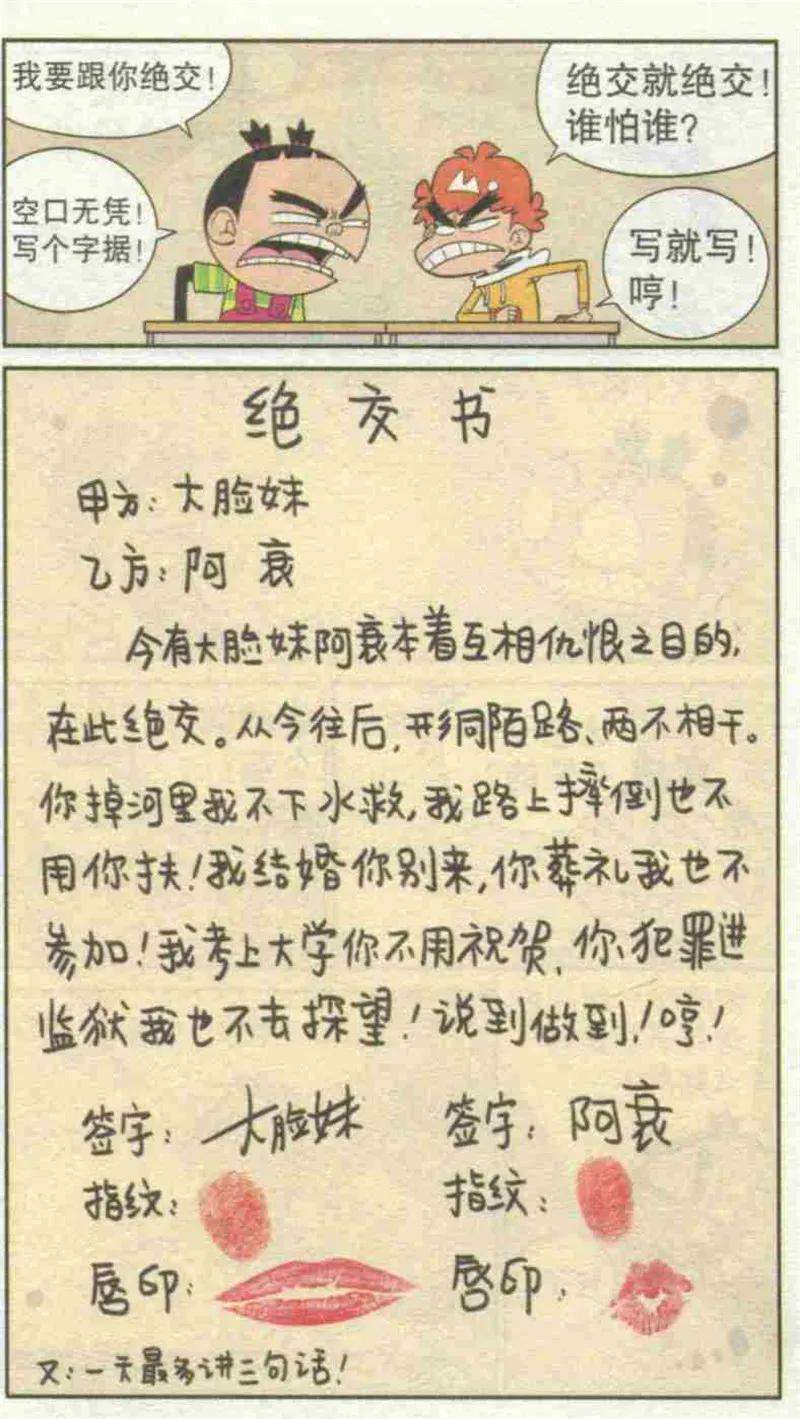 我要跟你绝交!
绝交就绝交!
谁怕谁?
空口无凭!
写个字据!
写就写!
哼!
绝交书
甲方:大脸妹
乙方:阿衰
今有大脸妹阿衰本着互相仇恨之目的,
在此绝交。从今往后,形同陌路、两不相干。
你掉河里我不下水救,我路上摔倒也不
用你扶!我结婚你别来,你葬礼我也不
参加!我考上大学你不用祝贺,你犯罪进
监狱我也不去探望!说到做到!哼!
签字:大脸妹 签字:阿衰
指纹: 指纹:
唇印: 唇印:
又:一天最多讲三句话!